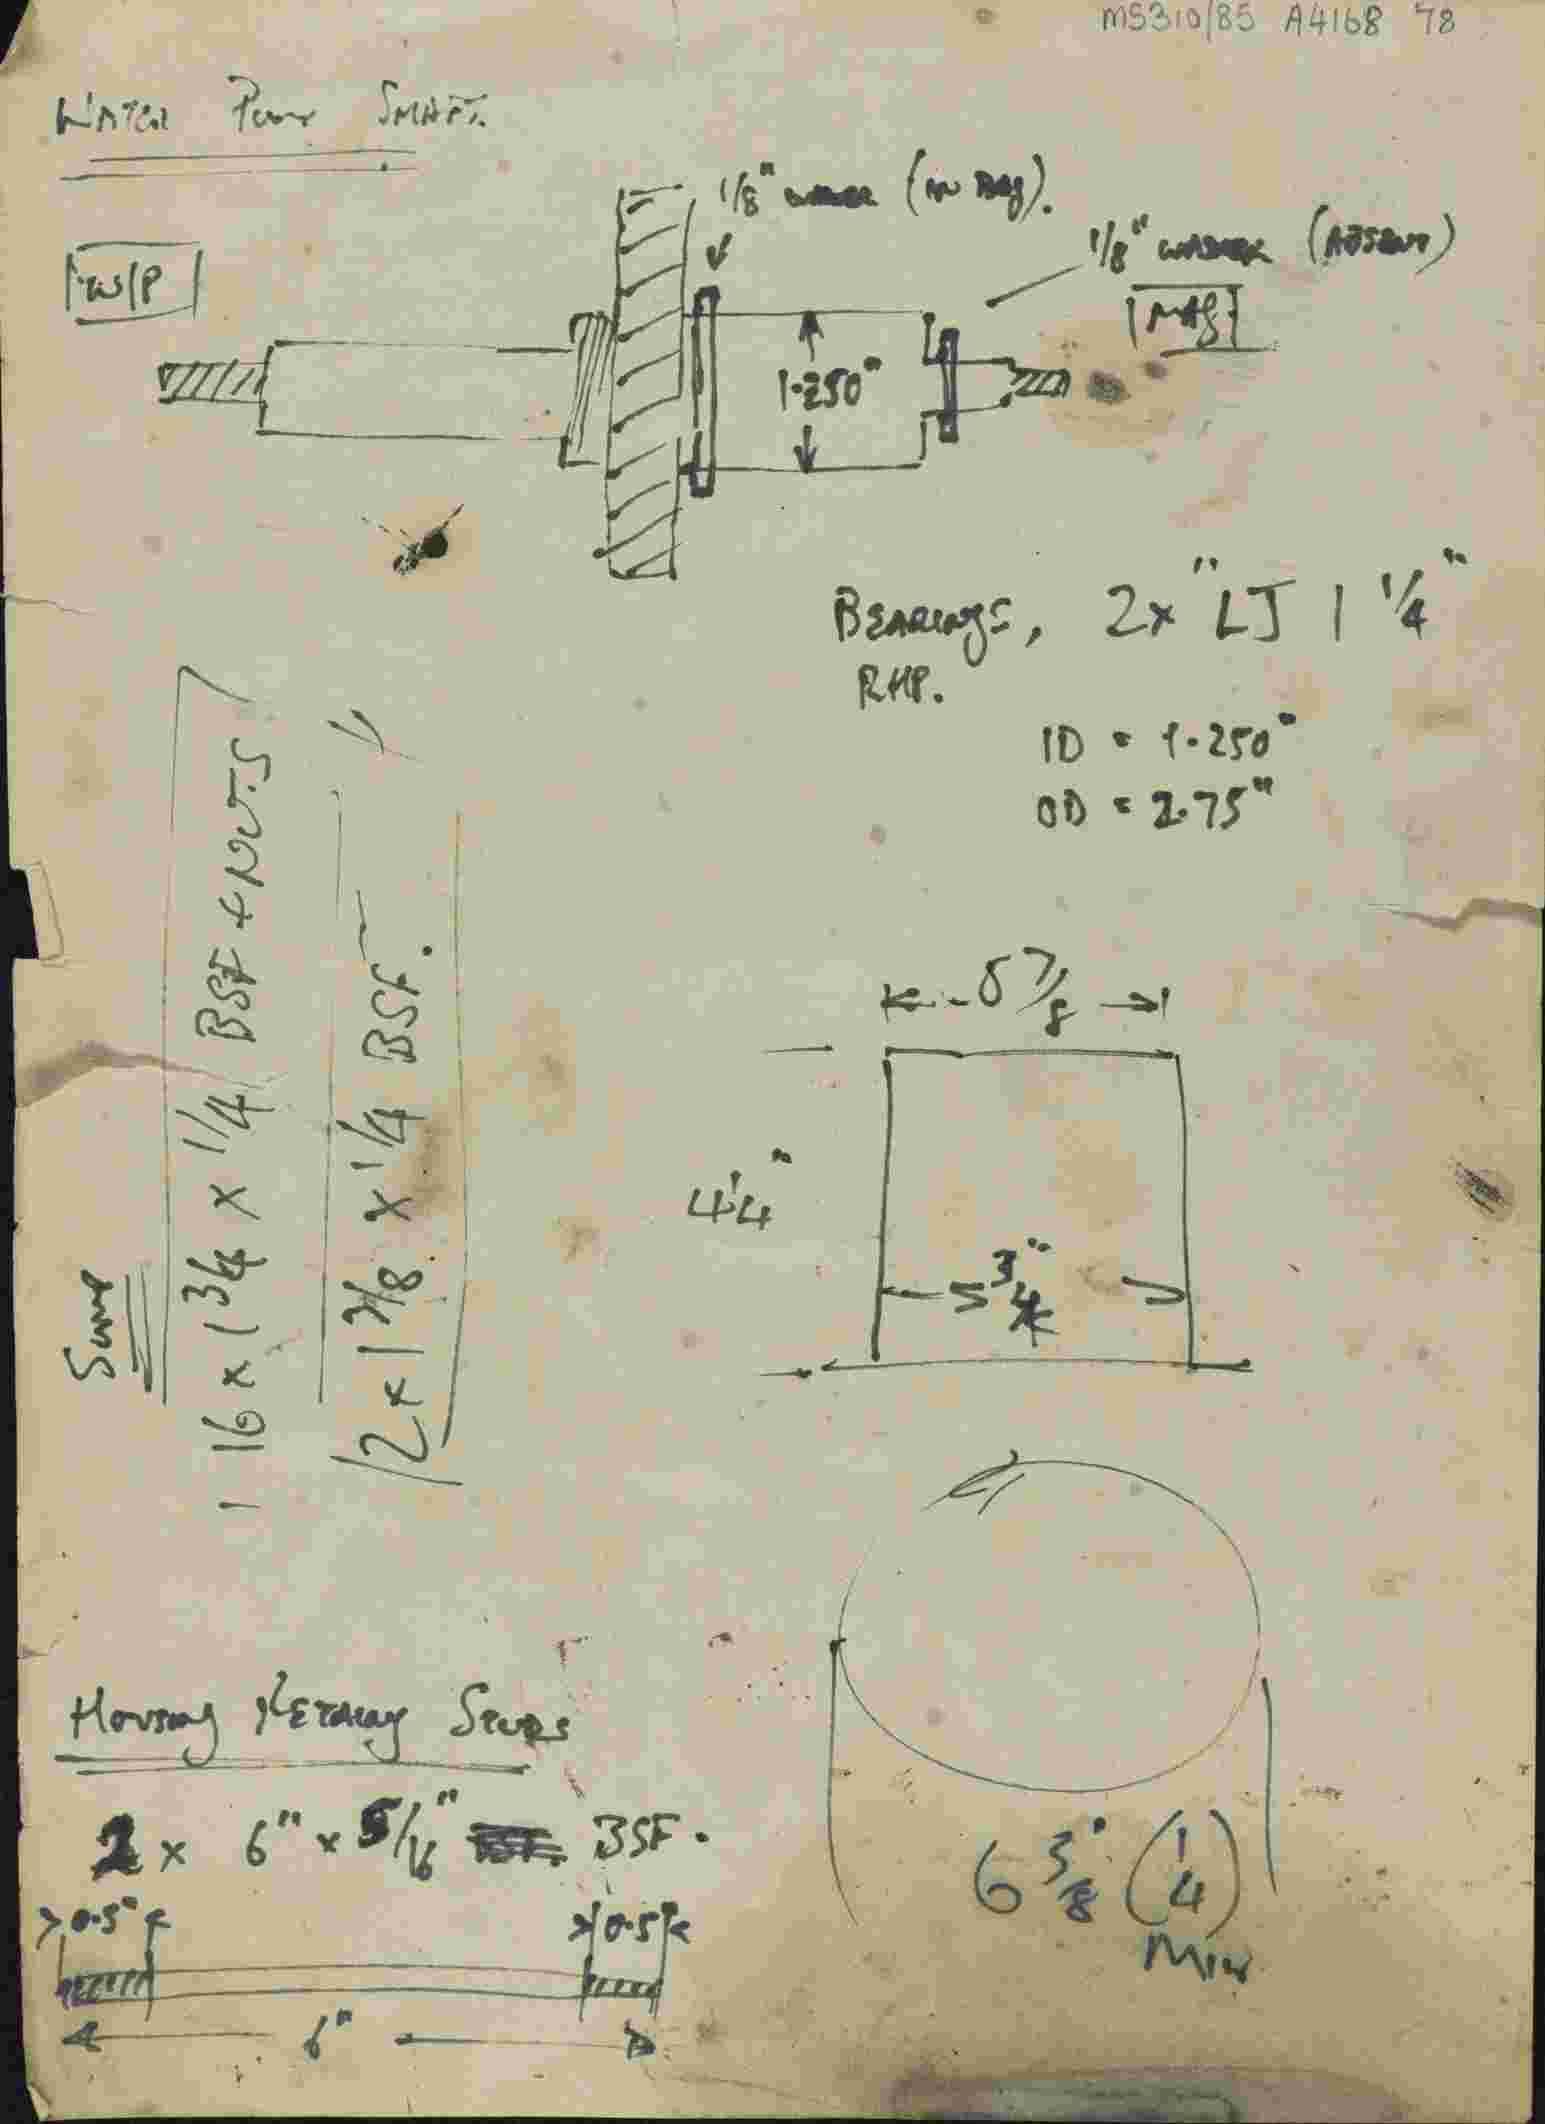 MS310/85 A4168 78
WATER PUMP SHAFT.
1/8" WASHER (IN MAG).
1/8" WASHER (ABSENT)
W/P
MAG
1.250"
BEARINGS, 2x "LJ 1 1/4"
RHP.
ID = 1.250"
OD = 2.75"
SUMP
16 x 1 3/4 x 1/4 BSF + NUTS
12 x 1 3/8 x 1/4 BSF. "
5 7/8
4 1/4"
5 3/4"
HOUSING RETAINING STUDS
2 x 6" x 5/16" BSF.
0.5"
0.5"
6"
6 3/8" (1/4)
MIN